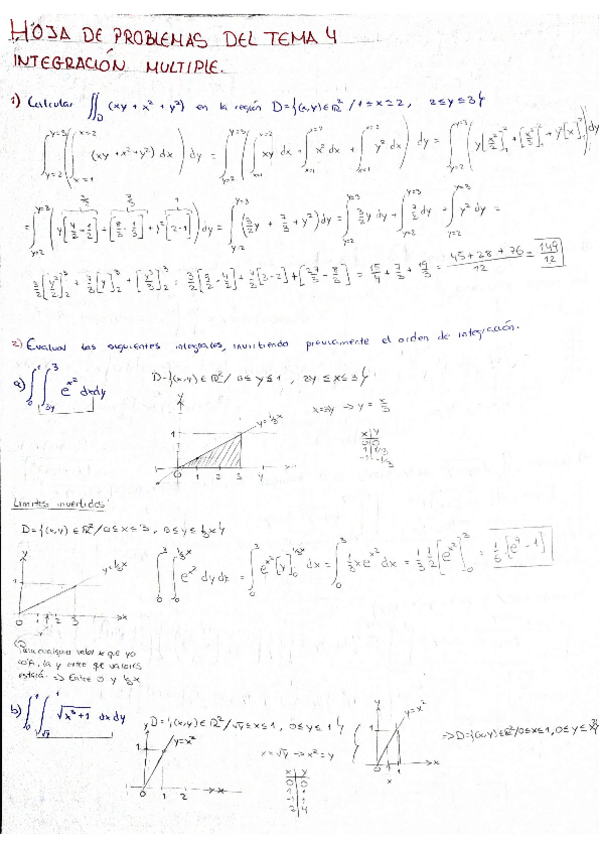 HOJA DE PROBLEMAS DEL TEMA 4
INTEGRACIÓN MULTIPLE.
1) Calcular ∬_D (xy + x² + y²) en la región D={(x,y)∈ℝ² / 1≤x≤2, 2≤y≤3}
∫_{y=2}^{y=3} ( ∫_{x=1}^{x=2} (xy+x²+y²) dx ) dy = ∫_{y=2}^{y=3} ( ∫_{x=1}^{x=2} xy dx + ∫_{x=1}^{x=2} x² dx + ∫_{x=1}^{x=2} y² dx ) dy = ∫_{y=2}^{y=3} ( y[x²/2]_1^2 + [x³/3]_1^2 + y²[x]_1^2 ) dy
= ∫_{y=2}^{y=3} ( y[4/2 - 1/2] + [8/3 - 1/3] + y²[2-1] ) dy = ∫_{y=2}^{y=3} (3/2 y + 7/3 + y²) dy = ∫_{y=2}^{y=3} 3/2 y dy + ∫_{y=2}^{y=3} 7/3 dy + ∫_{y=2}^{y=3} y² dy =
3/2 [y²/2]_2^3 + 7/3 [y]_2^3 + [y³/3]_2^3 = 3/2 [9/2 - 4/2] + 7/3 [3-2] + [27/3 - 8/3] = 15/4 + 7/3 + 19/3 = (45+28+76)/12 = 149/12
2) Evaluar las siguientes integrales, invirtiendo previamente el orden de integración.
a) ∫_0^1 ∫_{3y}^3 e^{x²} dxdy
D={(x,y)∈ℝ² / 0≤y≤1, 3y≤x≤3}
x=3y → y = x/3
y=1/3x
x y
0 0
1 1/3
-1 -1/3
Limites invertidos:
D={(x,y)∈ℝ² / 0≤x≤3, 0≤y≤1/3x}
y=1/3x
∫_0^3 ∫_0^{1/3x} e^{x²} dydx = ∫_0^3 e^{x²} [y]_0^{1/3x} dx = ∫_0^3 1/3 x e^{x²} dx = 1/3 1/2 [e^{x²}]_0^3 = 1/6 [e⁹ - 1]
Para cualquier valor x que yo
coja, la y entre que valores
estará → Entre 0 y 1/3x
b) ∫_0^1 ∫_{√y}^1 √(x³+1) dxdy
D={(x,y)∈ℝ² / √y≤x≤1, 0≤y≤1}
y=x²
x=√y → x²=y
y=x²
x y
0 0
1 1
2 4